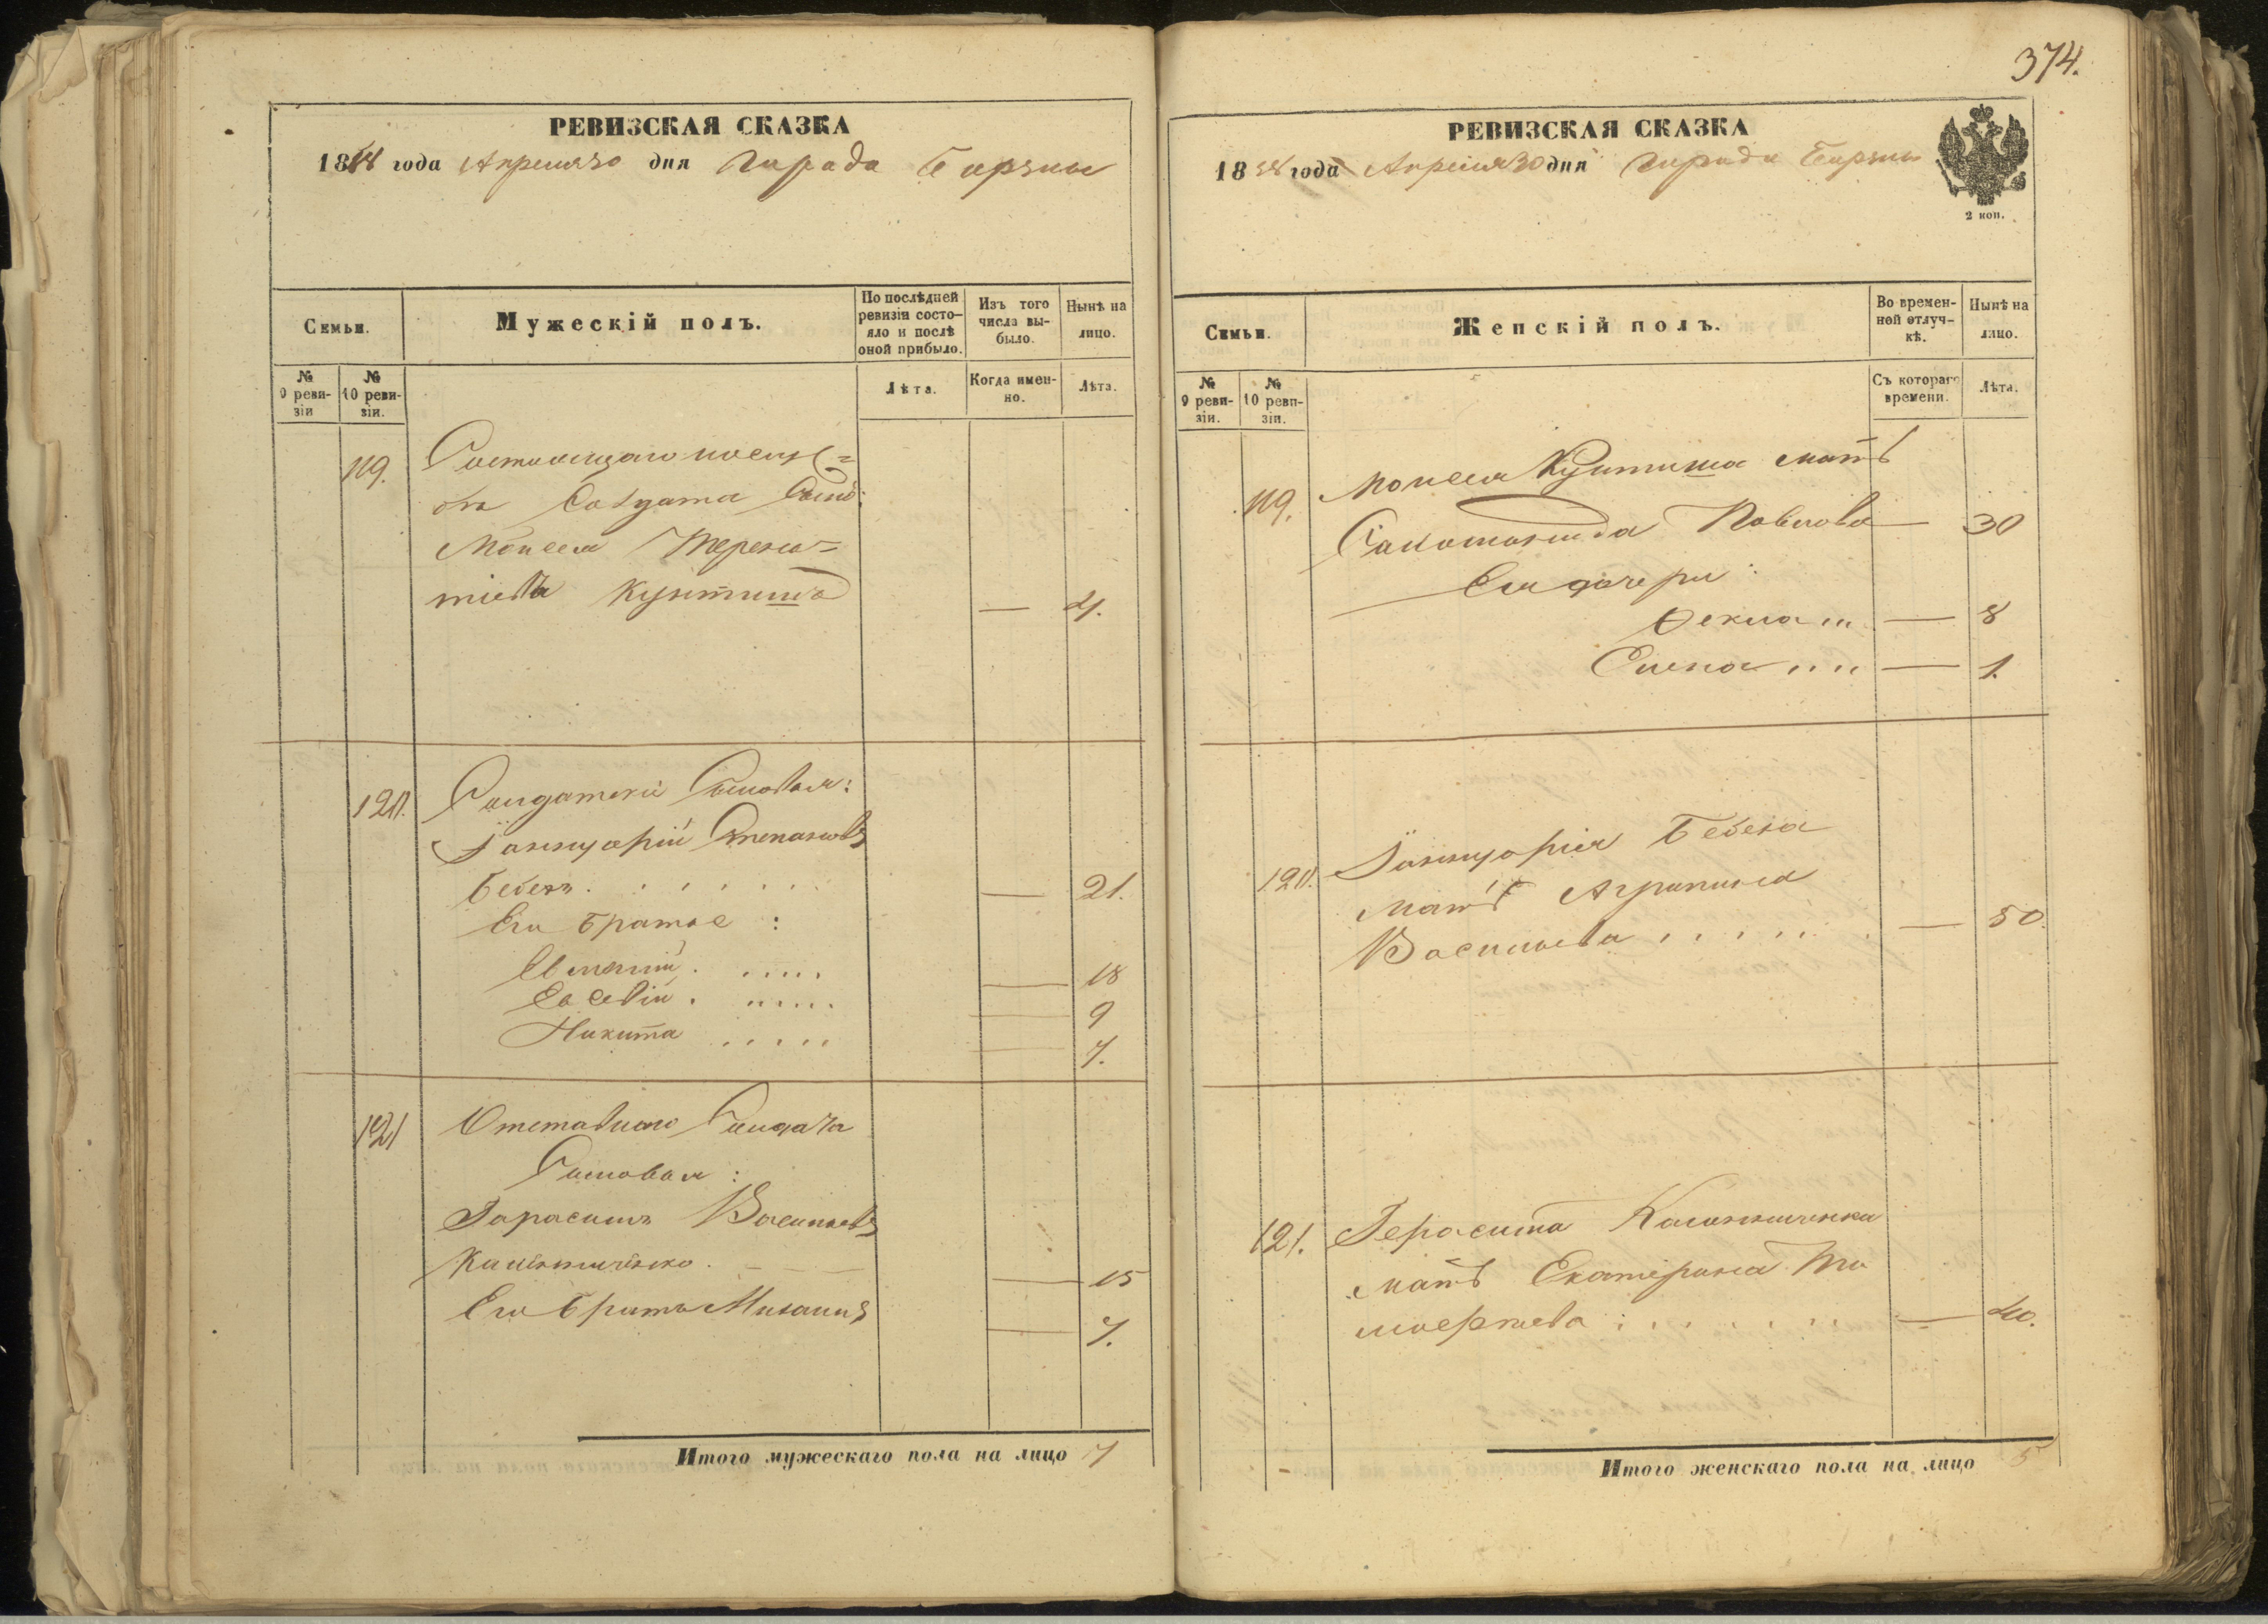 РЕВИЗСКАЯ СКАЗКА
1858 года Апреля 30 дня Города Борзны
Семьи.
Мужескій полъ.
По послѣдней ревизіи состояло и послѣ оной прибыло.
Изъ того числа выбыло.
Нынѣ на лицо.
№ 9 ревизіи
№ 10 ревизіи.
Лѣта.
Когда именно.
Лѣта.
119.
Состоящаго на служ=
бѣ Солдата Сынъ:
Моисей Терень=
тіевъ — 4.
120.
Солдатскіе Сыновья:
Іаннуарій Степановъ
Бебехъ — 21.
Его братья:
— 18
Евсевій — 9
Никита — 7.
121
Отставнаго Солдата
Сыновья:
Герасимъ Васильевъ
— 15
Его братъ Михаилъ — 7.
Итого мужескаго пола на лицо 7
374.
РЕВИЗСКАЯ СКАЗКА
1858 года Апреля 30 дня Города Борзны
2 коп.
Семьи.
Женскій полъ.
Во временной отлучкѣ.
Нынѣ на лицо.
№ 9 ревизіи.
№ 10 ревизіи.
Съ котораго времени.
Лѣта.
119.
Моисея мать
Павлова — 30
Ея дочери:
Фекла — 8
Елена — 1.
120.
Іаннуарія Бебеха
мать Агрипина
Васильева — 50.
121.
Герасима
мать Екатерина
— 40.
Итого женскаго пола на лицо 5